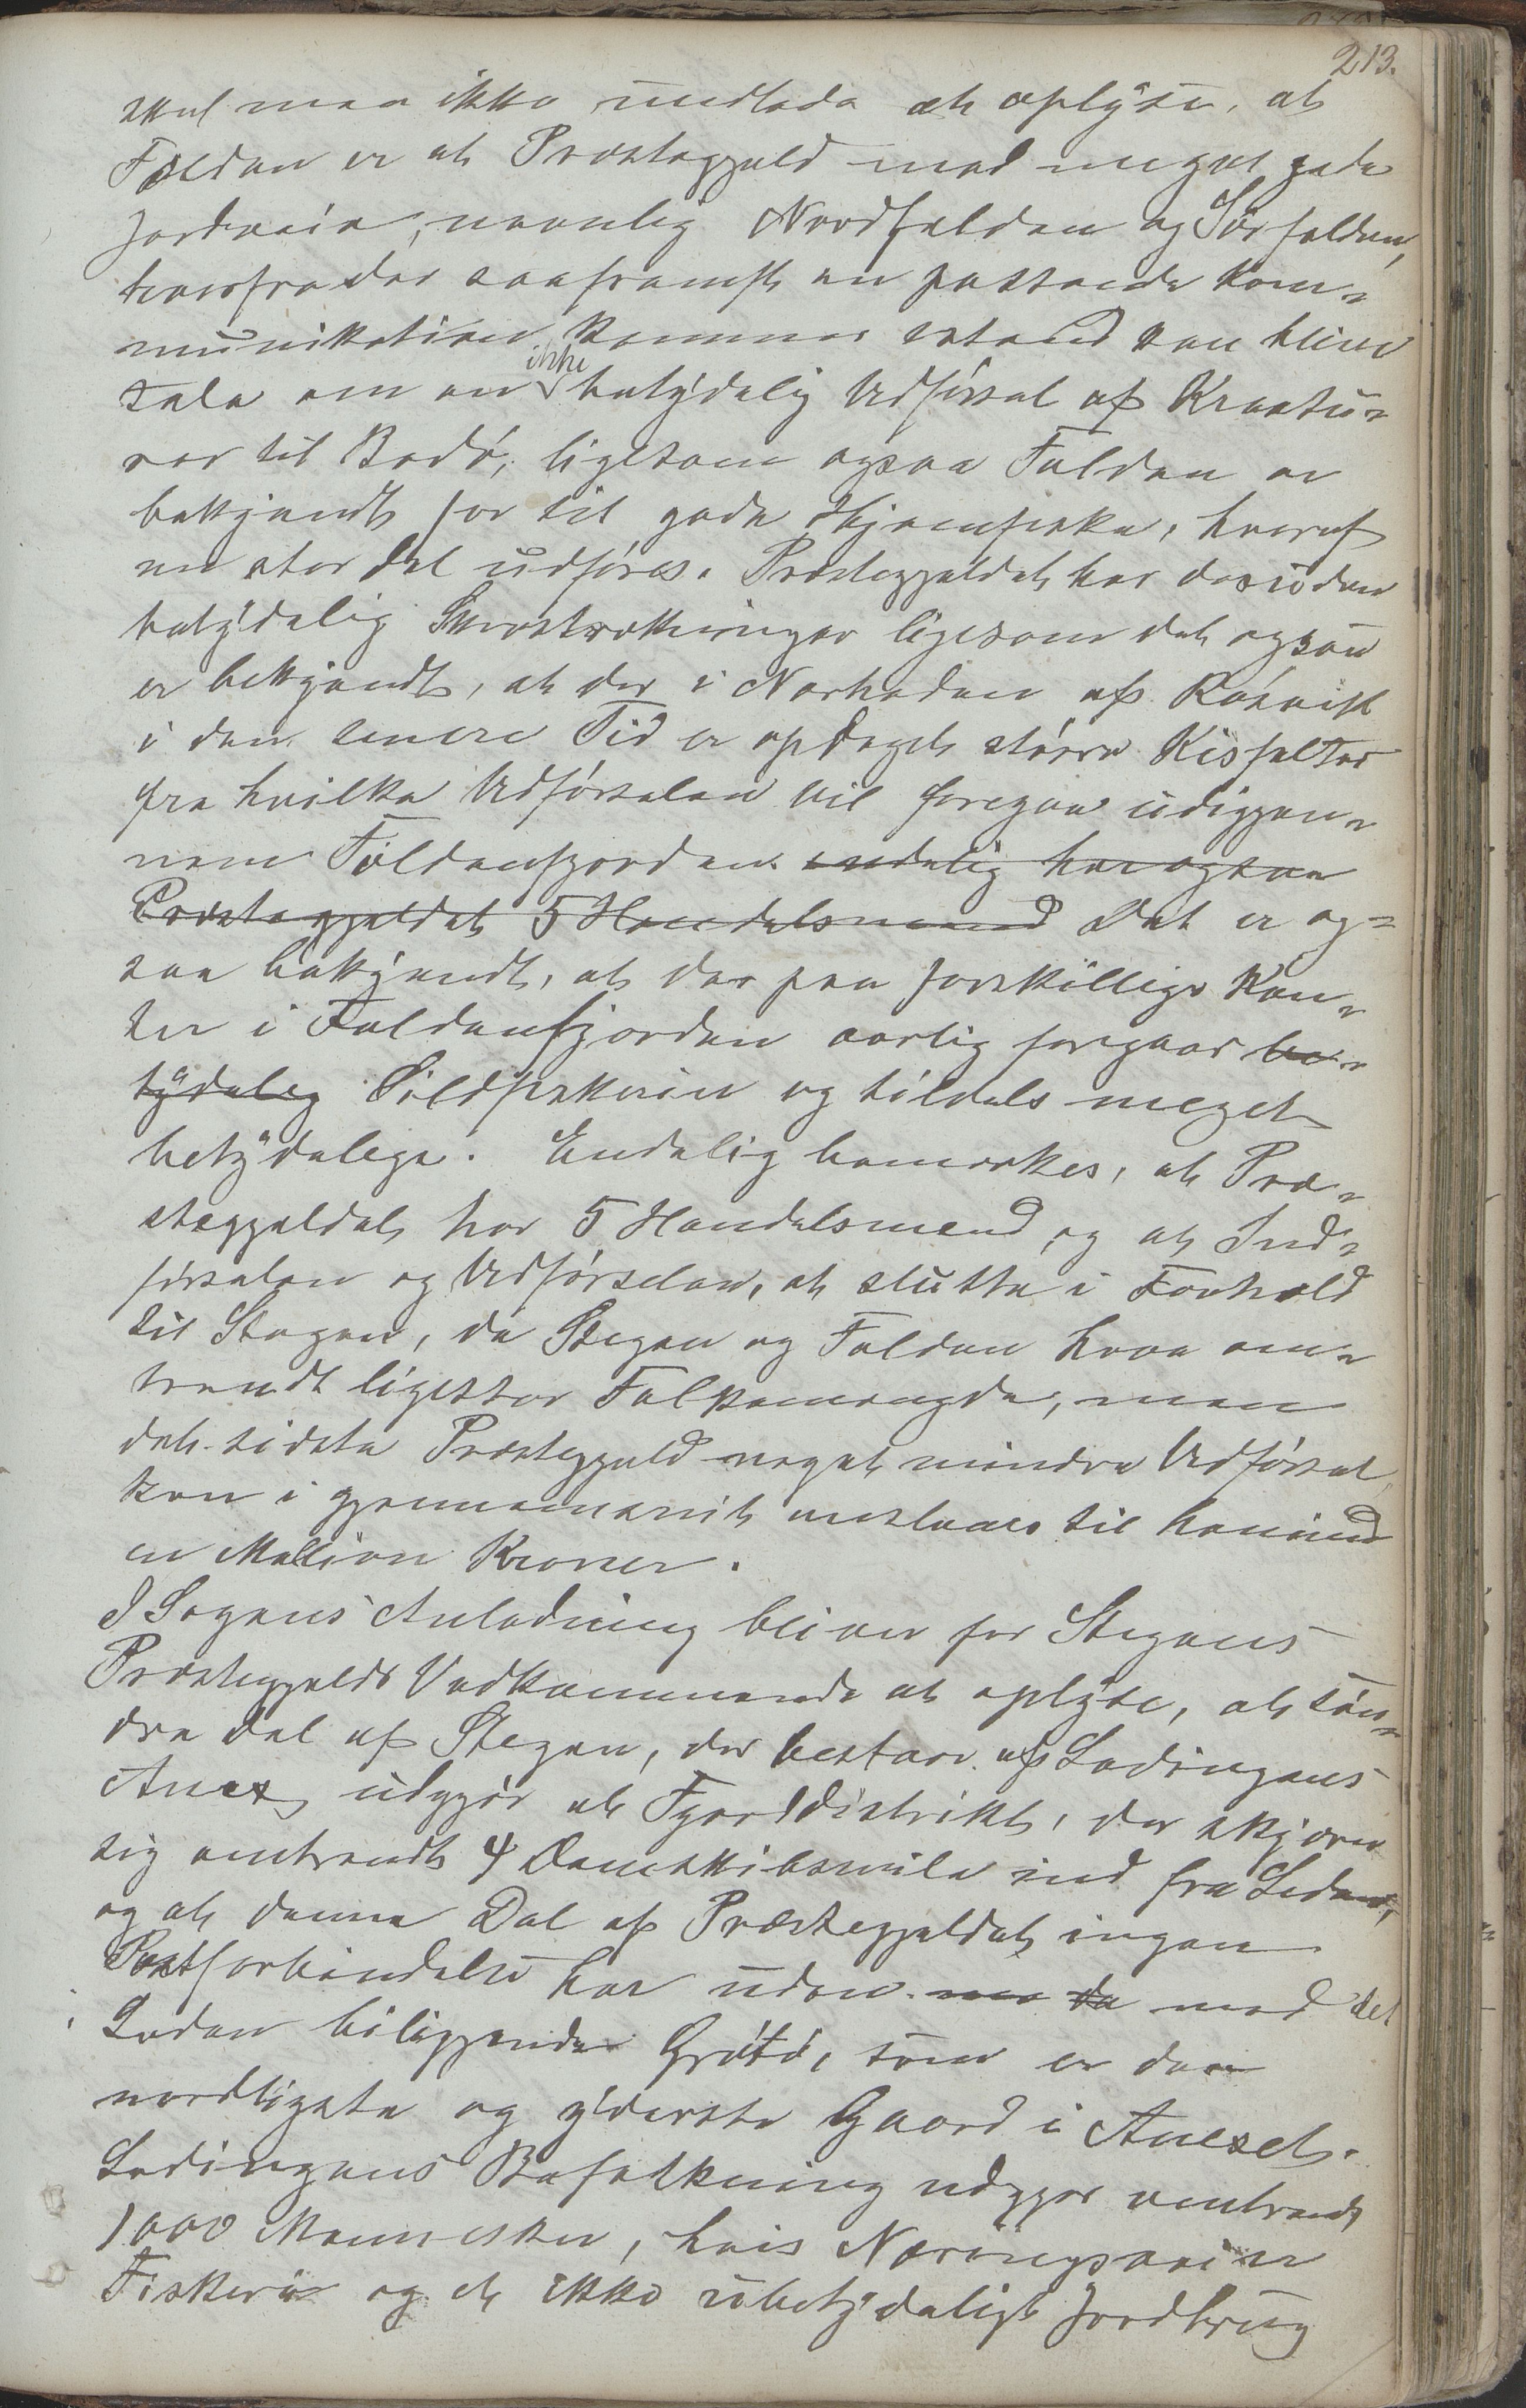 213.
skal man ikke undlade at oplyse, at
Folden er et Præstegjeld med meget gode
Jordveie, navnlig Nordfolden og Sörfolden,
hvorfra der saafremt en passende Kom-
munikation kommer istand kan blive
Tale om en ikke betydelig Udförsel af Kreatu-
rer til Bodö, ligesom ogsaa Folden er
bekjendt for sit gode Hjemfiske, hvoraf
en stor Del udföres. Præstegjeldet har desuden
betydelig Skovstrækninger ligesom det ogsaa
er bekjendt, at der i Nærheden af Rösvik
i den senere Tid er opdaget större Kisfelter
fra hvilke Udförselen vil foregaa udigjen-
nem Foldenfjorden. endelig har ogsaa
Præstegjeldet 5 Handelsmænd Det er og-
saa bekjendt, at der paa forskjellige Kan-
ter i Foldenfjorden aarlig foregaar be-
tydelig Sildfiskerier og tildels meget
betydelige. Endelig bemærkes, at Præ-
stegjeldet har 5 Handelsmænd, og at Ind-
förselen og Udförselen, at slutte i Forhold
til Stegen, da Stegen og Folden have om-
trendt ligestor Folkemængde, men
det sidste Præstegjeld noget mindre Udförsel,
kan i gjennemsnit anslaaes til henimod
en Million Kroner.
I Sagens Anledning bliver for Stegens
Præstegjelds Vedkommende at oplyse, at sön-
dre Del af Stegen, der bestaar af Ledingens
Anex, udgjör et Fjorddistrikt, der skjærer
sig omtrendt 4 Dampskibsmile ind fra Leden,
og at denne Del af Præstegjeldet ingen
Postforbindelse har uden med det
i Leden beliggende Grötö, som er den
nordligste og yderste Gaard i Anexet.
Ledingens Befolkning udgjör omtrendt
1000 Mennesker, hvis Næringsvei er
Fiskeri og et ikke ubetydeligt Jordbrug